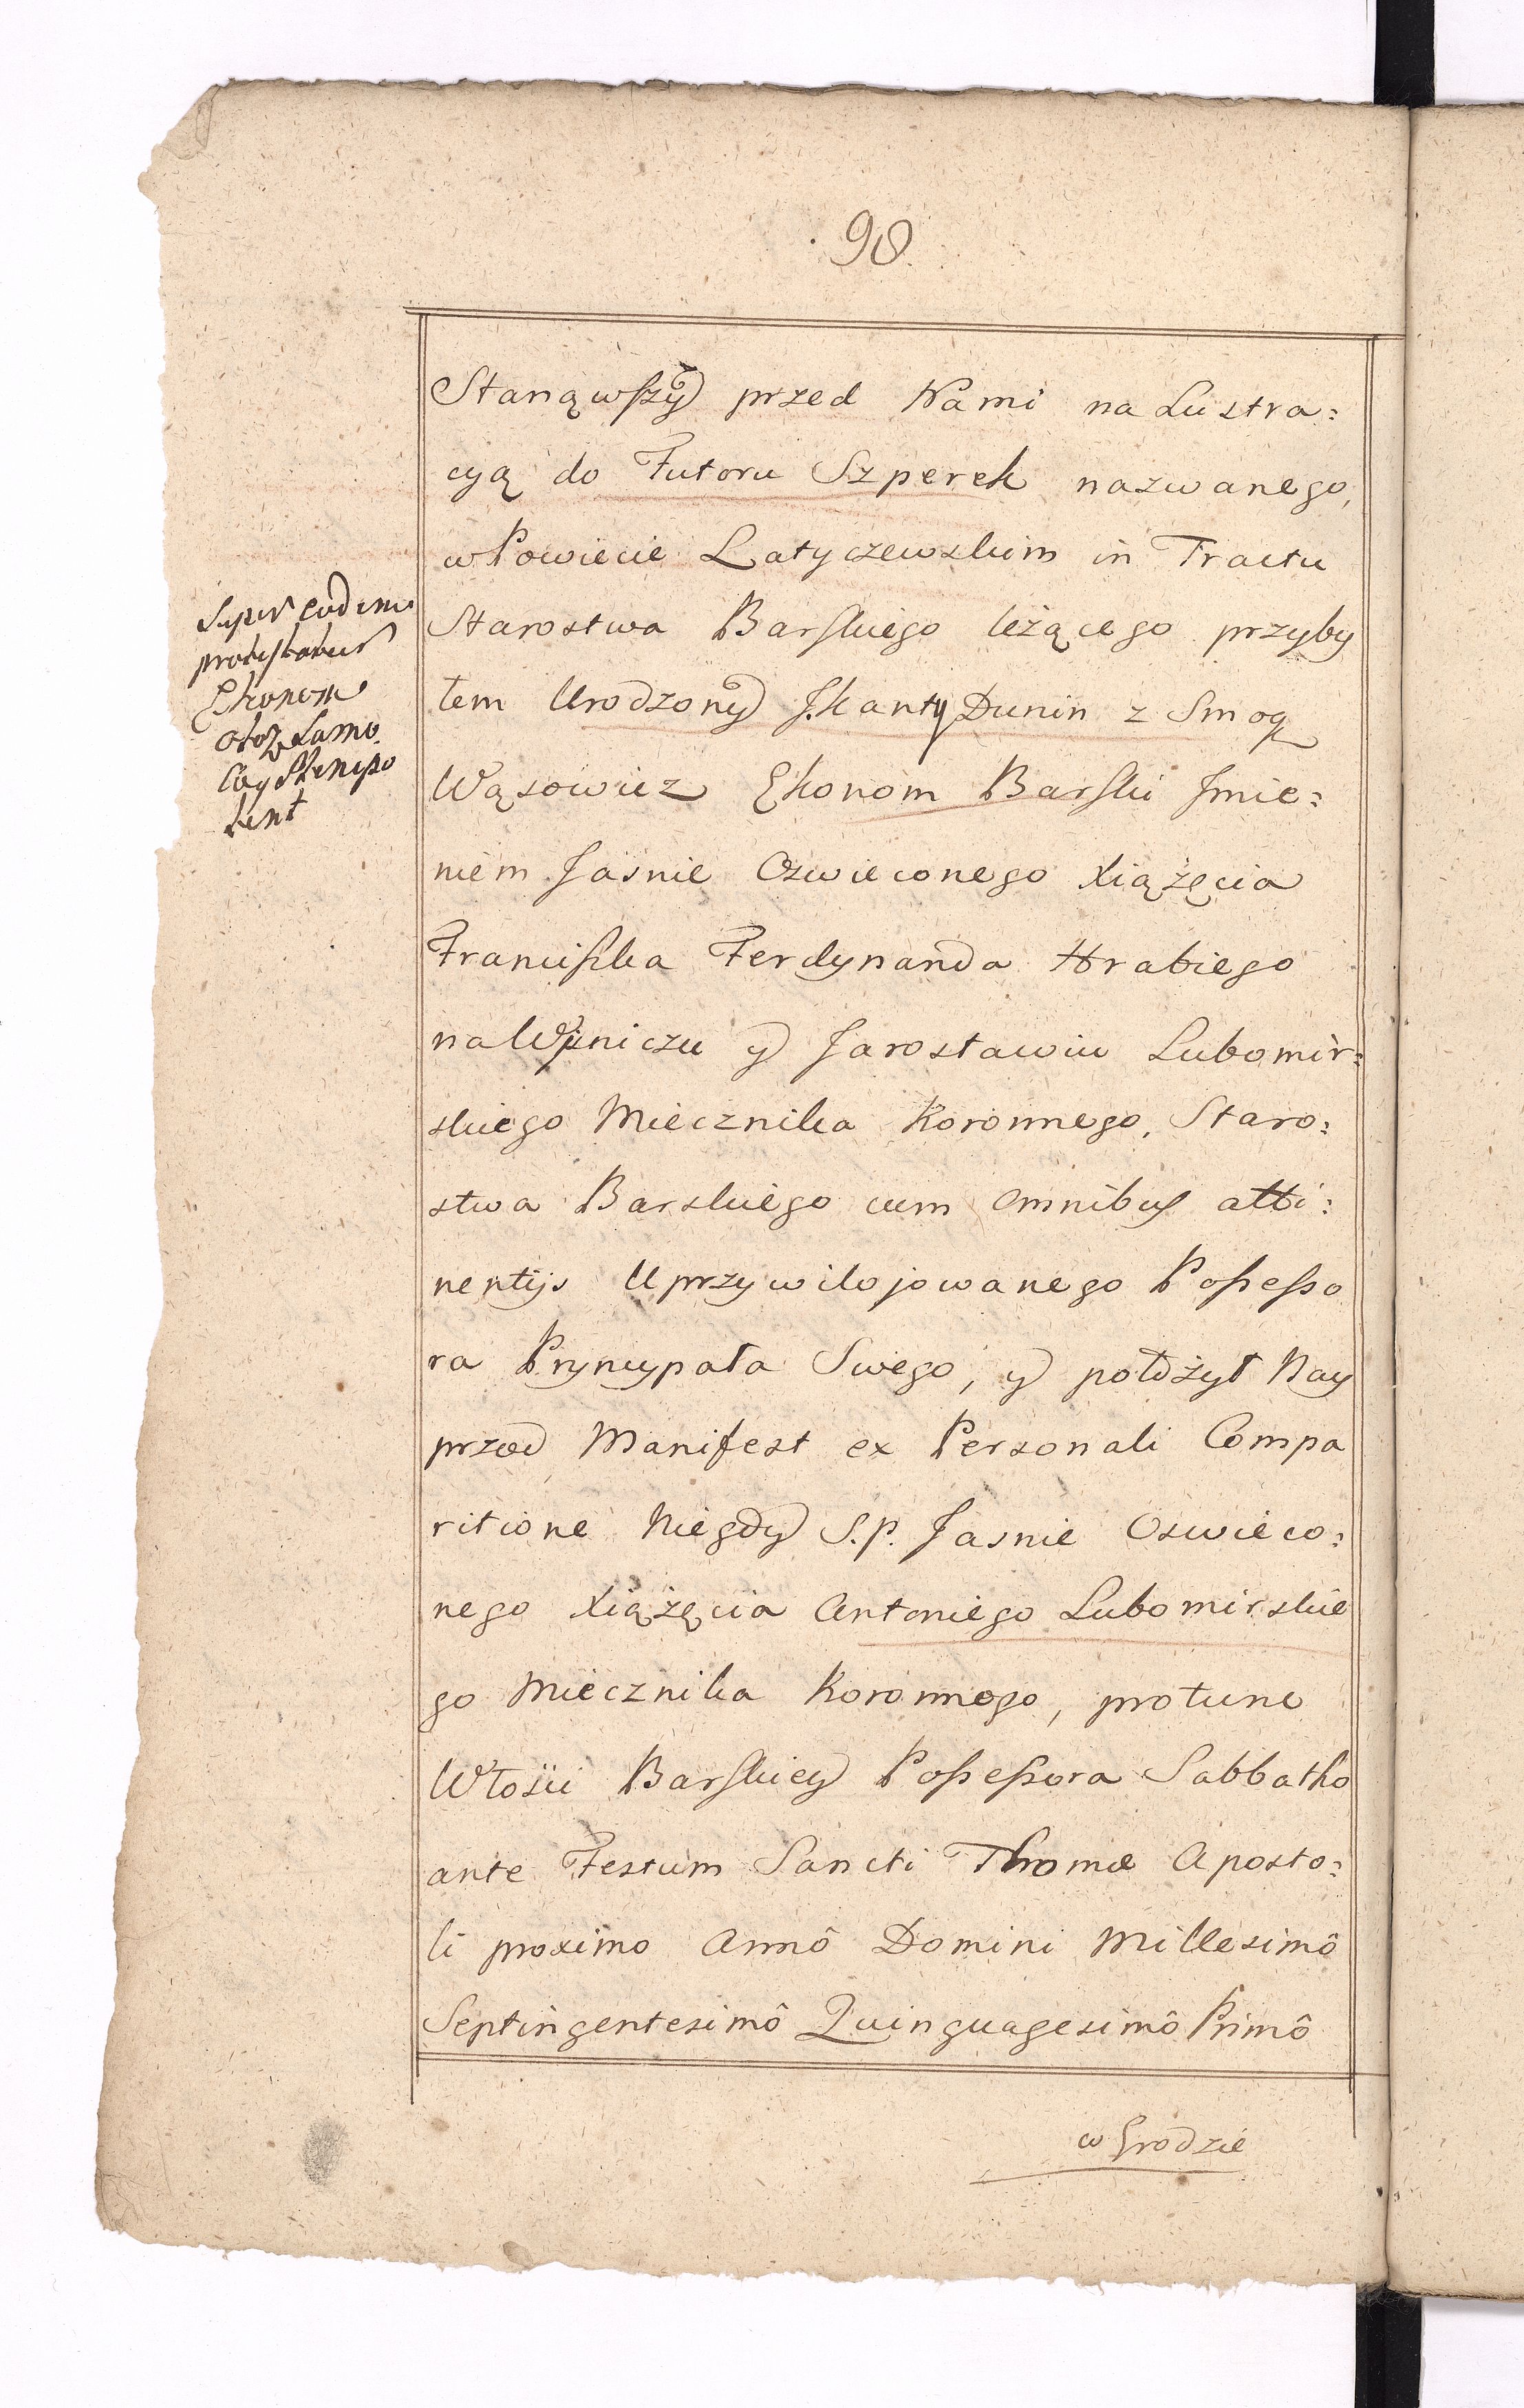 98
Stanąwszy przed Nami na Lustra:
cyą do Futoru Szperek nazwanego,
w Powiecie Latyczewskim in Tractu
Starostwa Barskiego leżącego przyby
łem Urodzony J. Kanty Dunin z Smog
Wąsowicz Ekonom Barski Jmie:
niem Jasnie Oswieconego Xiążęcia
Franciszka Ferdynanda Hrabiego
na Wiśniczu y Jarosławiu Lubomir:
skiego Miecznika Koronnego, Staro:
stwa Barskiego cum omnibus atti:
nentijs Uprzywilojowanego Possesso
ra Pryncypała Swego, y położył Nay
przod Manifest ex Personali Compa
ritione Niegdy S.p. Jasnie Oswieco:
nego Xiążęcia Antoniego Lubomirskie
go Miecznika Koronnego, protunc
Włosci Barskiey Possessora Sabbatho
ante Festum Sancti Thomæ Aposto:
li proximo Annô Domini Millesimô
Septingentesimô Quinquagesimô Primô
w Grodzie
Super eodem
protestatur
Ekonom